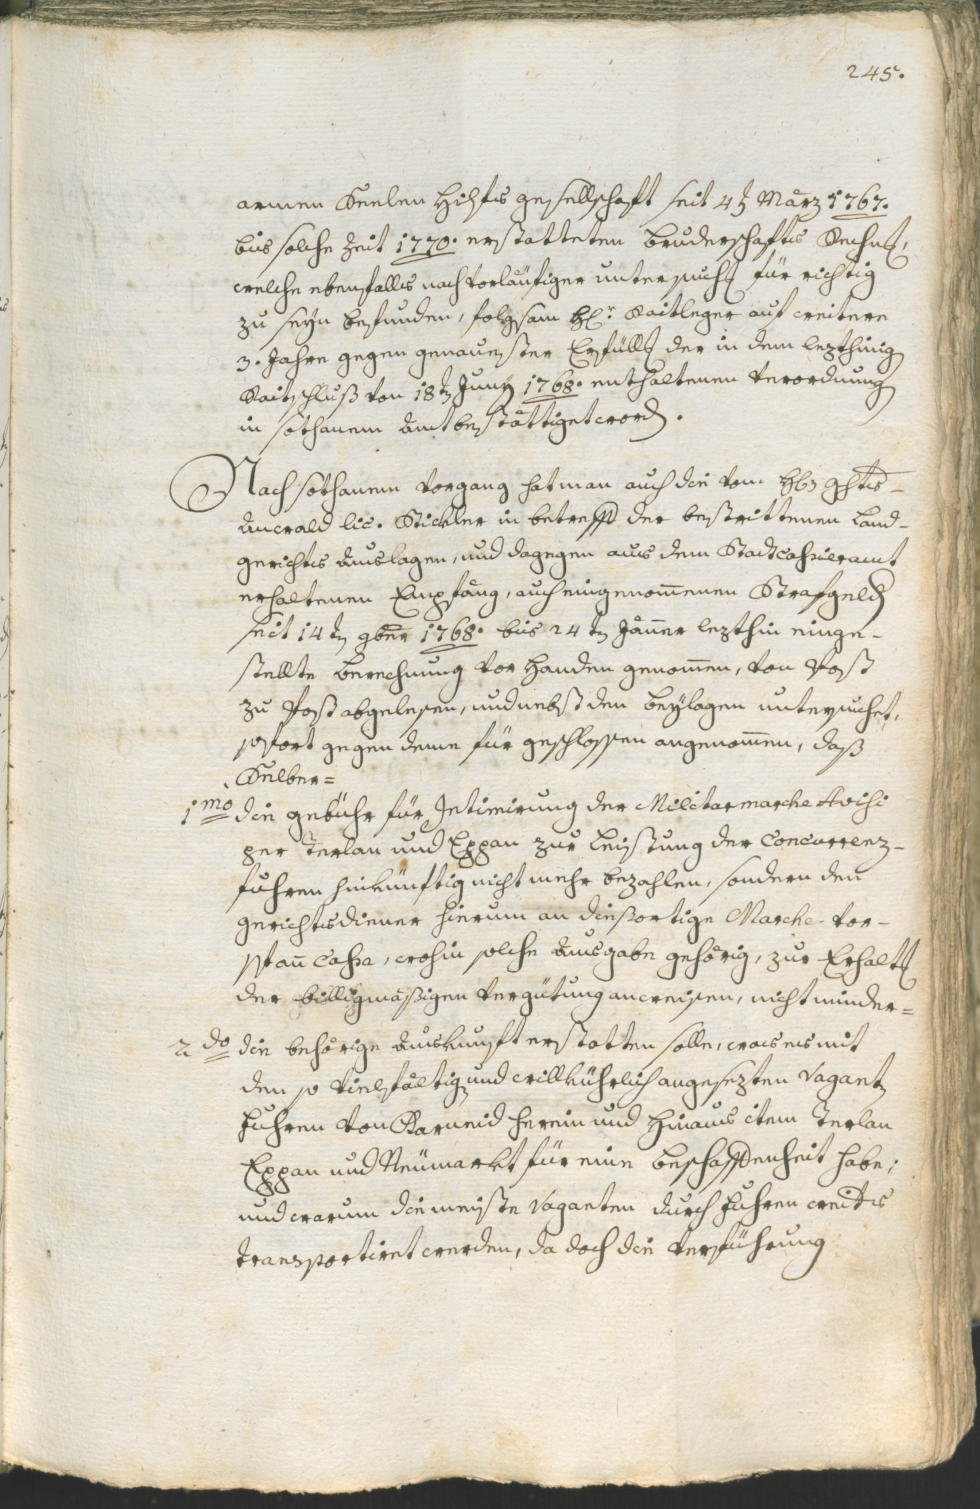 245.
armen Seelen Hilfs gesellschaft seit 4t März 1767.
bis solche Zeit 1770. erstatteten Bruderschafts Rechng,
welche ebenfalls nach vorläufiger untersuchg für richtig
zu seyn befunden, folgsam Hr. Raitleger auf weitere
3. Jahre gegen genauester Erfüllg der in dem lezthinig
Raitschluß von 18t Juny 1768. enthaltenen Verordnung
in sothanem Amt bestättiget word.
Nach sothanem Vorgang hat man auch die vom
Anwald lic. Stickler in betreff der bestrittenen Land-
gerichts Auslagen, und dagegen aus dem Stadt cassieramt
erhaltenen Empfang, auch eingenom̄enen Strafgeld
seit 14t 9ber 1768. bis 24t Jäner lezthin einge-
stellte berechnung vor Handen genom̄en, von Post
zu Post abgelesen, und nebst den beylagen untersuchet,
sofort gegen deme für geschlossen angenom̄en, daß
Selber=
1mo die gebühr für Intimirung der Militarmarche Avisi
per Terlan und Eppan zur Leistung der Concurrenz-
fuhren hinkünftig nicht mehr bezahlen, sondern den
gerichtsdiener hierum an dießortige Marche-Vor-
span̄ Cassa, wohin solche Ausgabe gehörig, zur Erhaltg
der billigmäßigen Vergütung anweisen, nicht minder=
2do die behörige Auskunft erstatten solle, was es mit
den so vielfältig und willkührlich angesezten Vagant
fuhren von Karneid herein und hinaus item Terlan
Eppan und Neümarkt für eine beschaffenheit habe;
und warum die meiste Vaganten durch fuhren
transportiret werden, da doch die Verführung